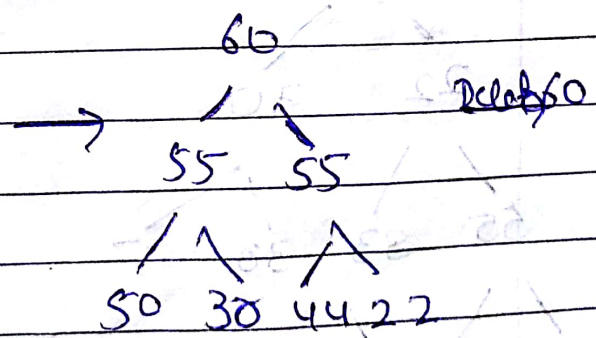 60
Delete 60
55 55
50 30 44 22